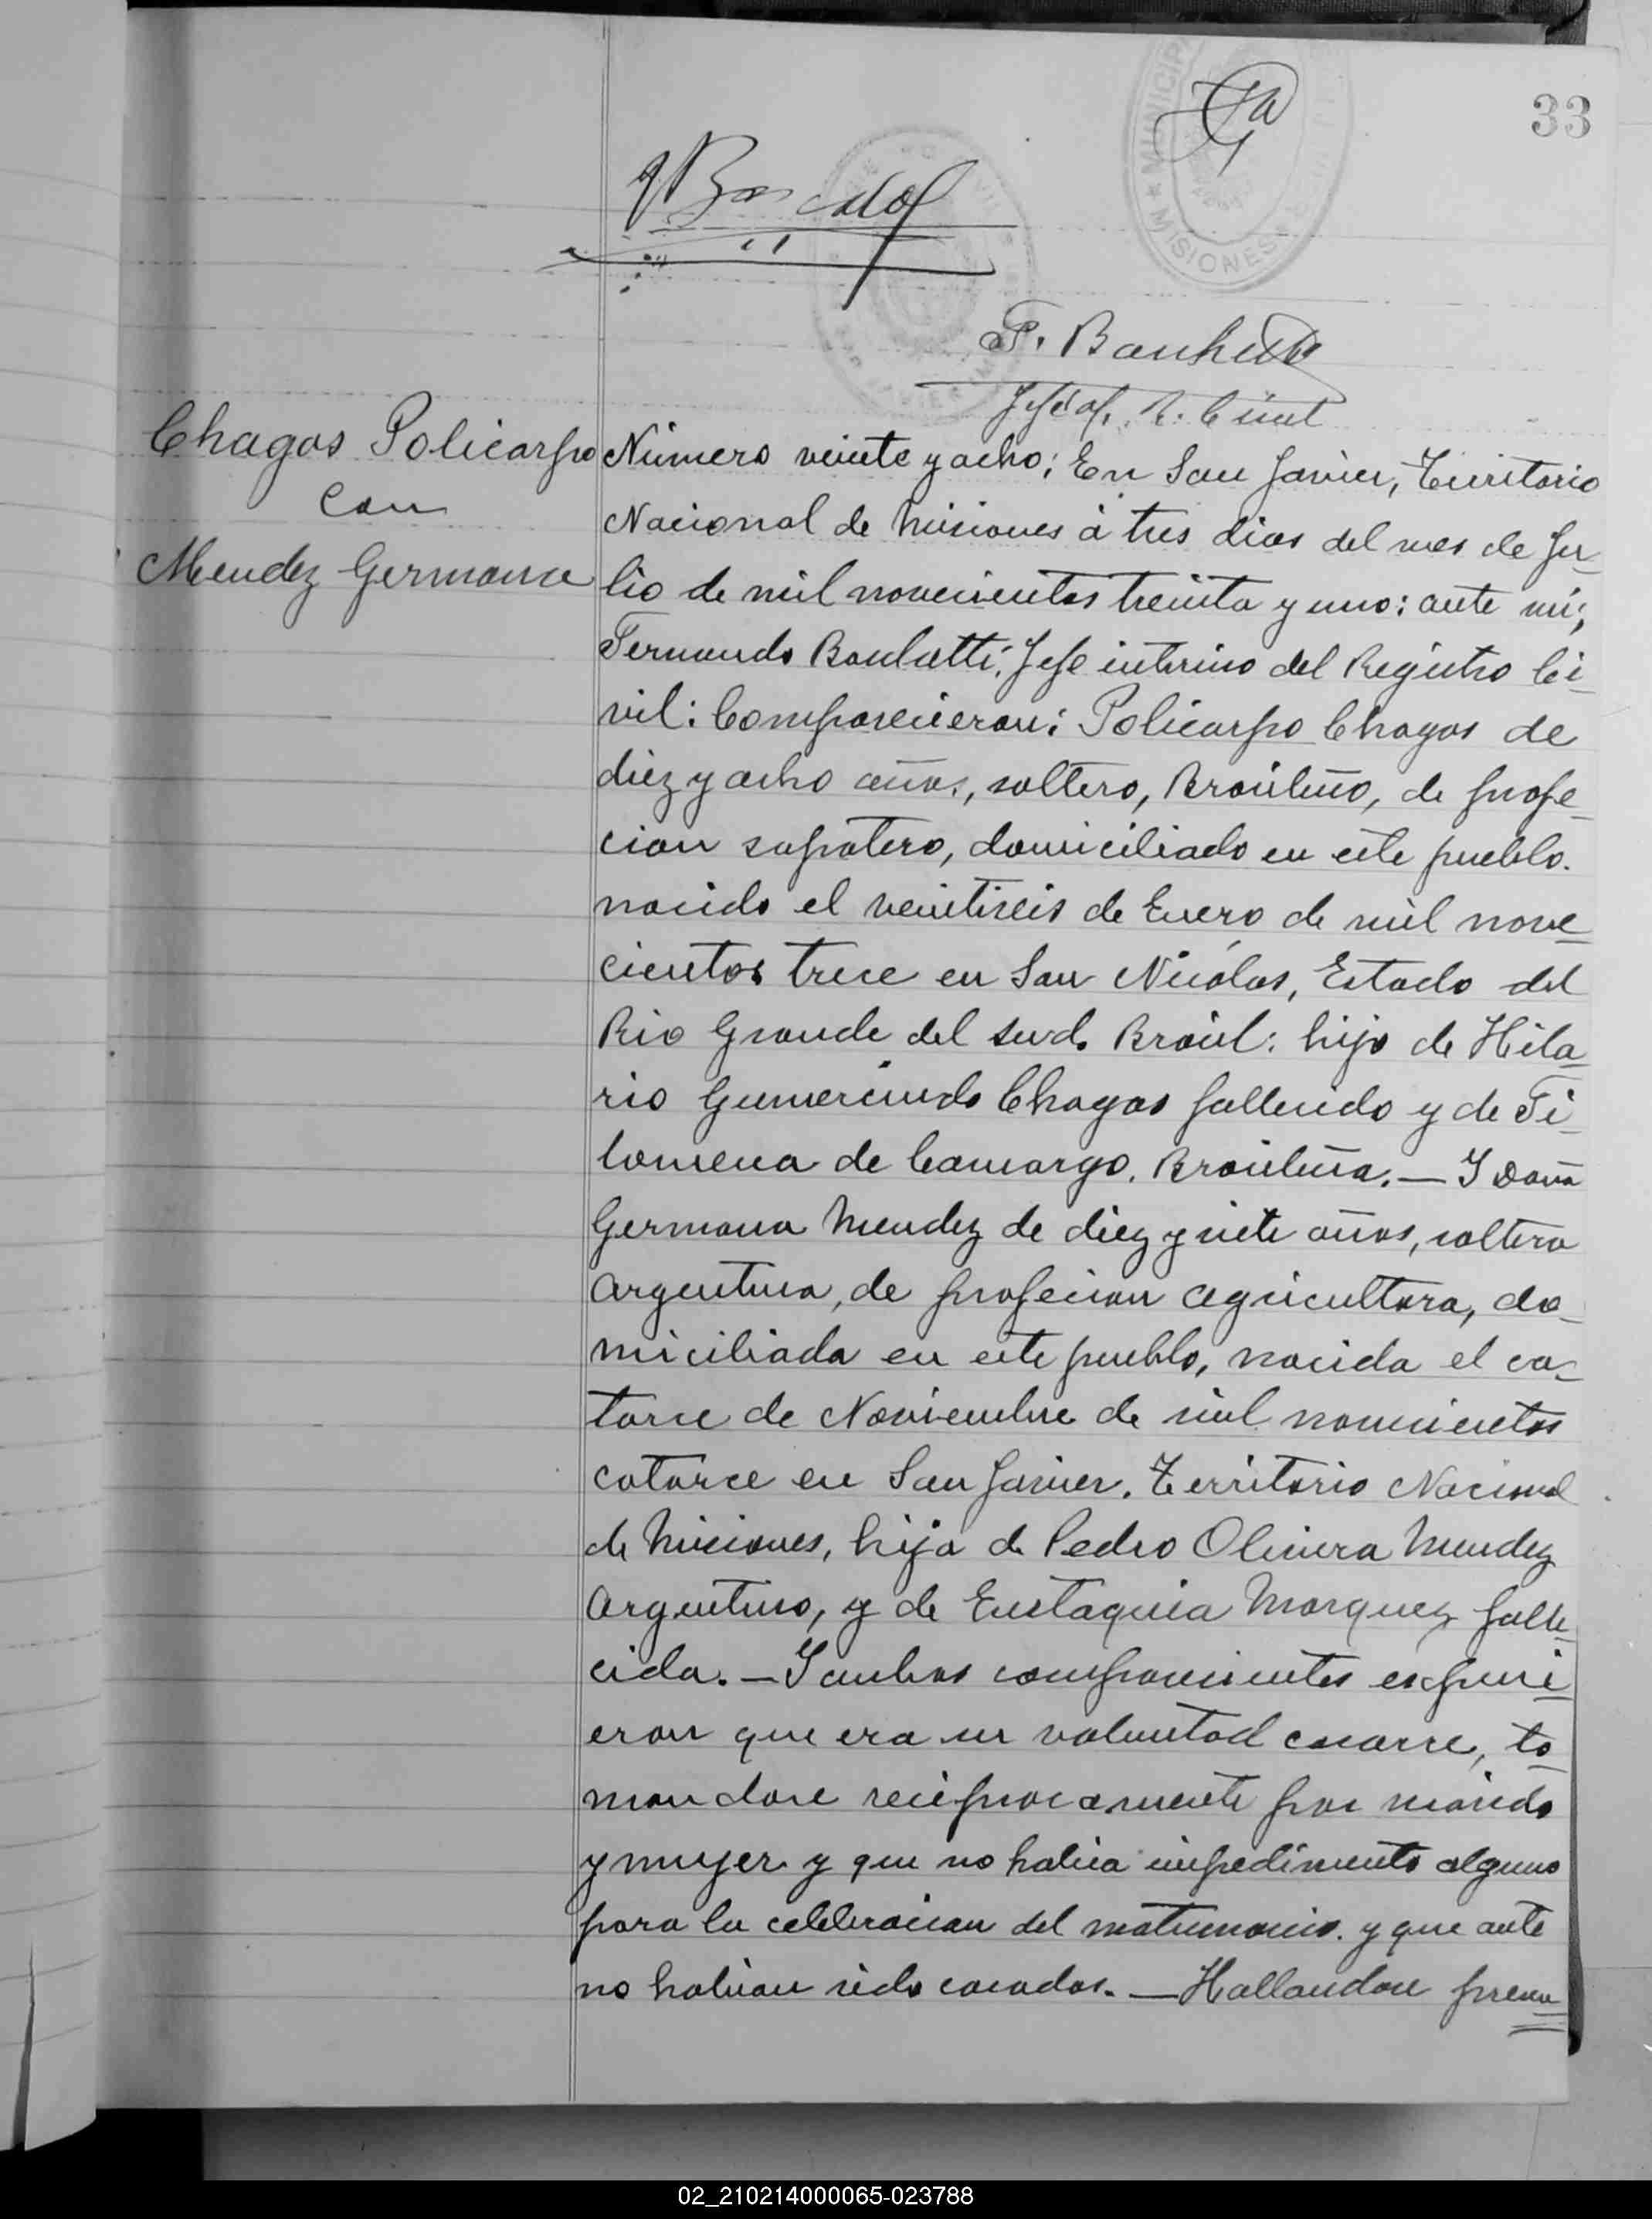 33
MUNICIPA
MISIONES
Chagas Policarpo
con
Mendez Germana
Número veinte y ocho; En San Javier, Territorio
Nacional de Misiones á tres dias del mes de Ju-
lio de mil novecientos treinta y uno: ante mi;
Fernando Jefe interino del Registro Ci-
vil: Comparecieron: Policarpo Chagas de
diez y ocho años, soltero, Brasileño, de profe-
cion sapatero, domiciliado en este pueblo.
nacido el veintiseis de Enero de mil nove-
cientos trece en San Nicolas, Estado del
Rio Grande del Sud. Brasil: hijo de Hila-
rio Gumercindo Chagas fallecido y de Fi-
lomena de Camargo, Brasileña. — Y Doña
Germana Mendez de diez y siete años, soltera
Argentina, de profecion agricultora, do-
miciliada en este pueblo, nacida el ca-
torce de Noviembre de mil novecientos
catorce en San Javier. Territorio Nacional
de Misiones, hija de Pedro Olivera Mendez
Argentino, y de Eustaquia Marquez falle-
cida. — Y ambos comparecientes expuci-
eron que era su voluntad casarse, to-
mandose reciprocamente por marido
y mujer y que no habia impedimento alguno
para la celebracion del matrimonio. y que ante
no habian sido casados. — Hallandose presen
02_210214000065-023788